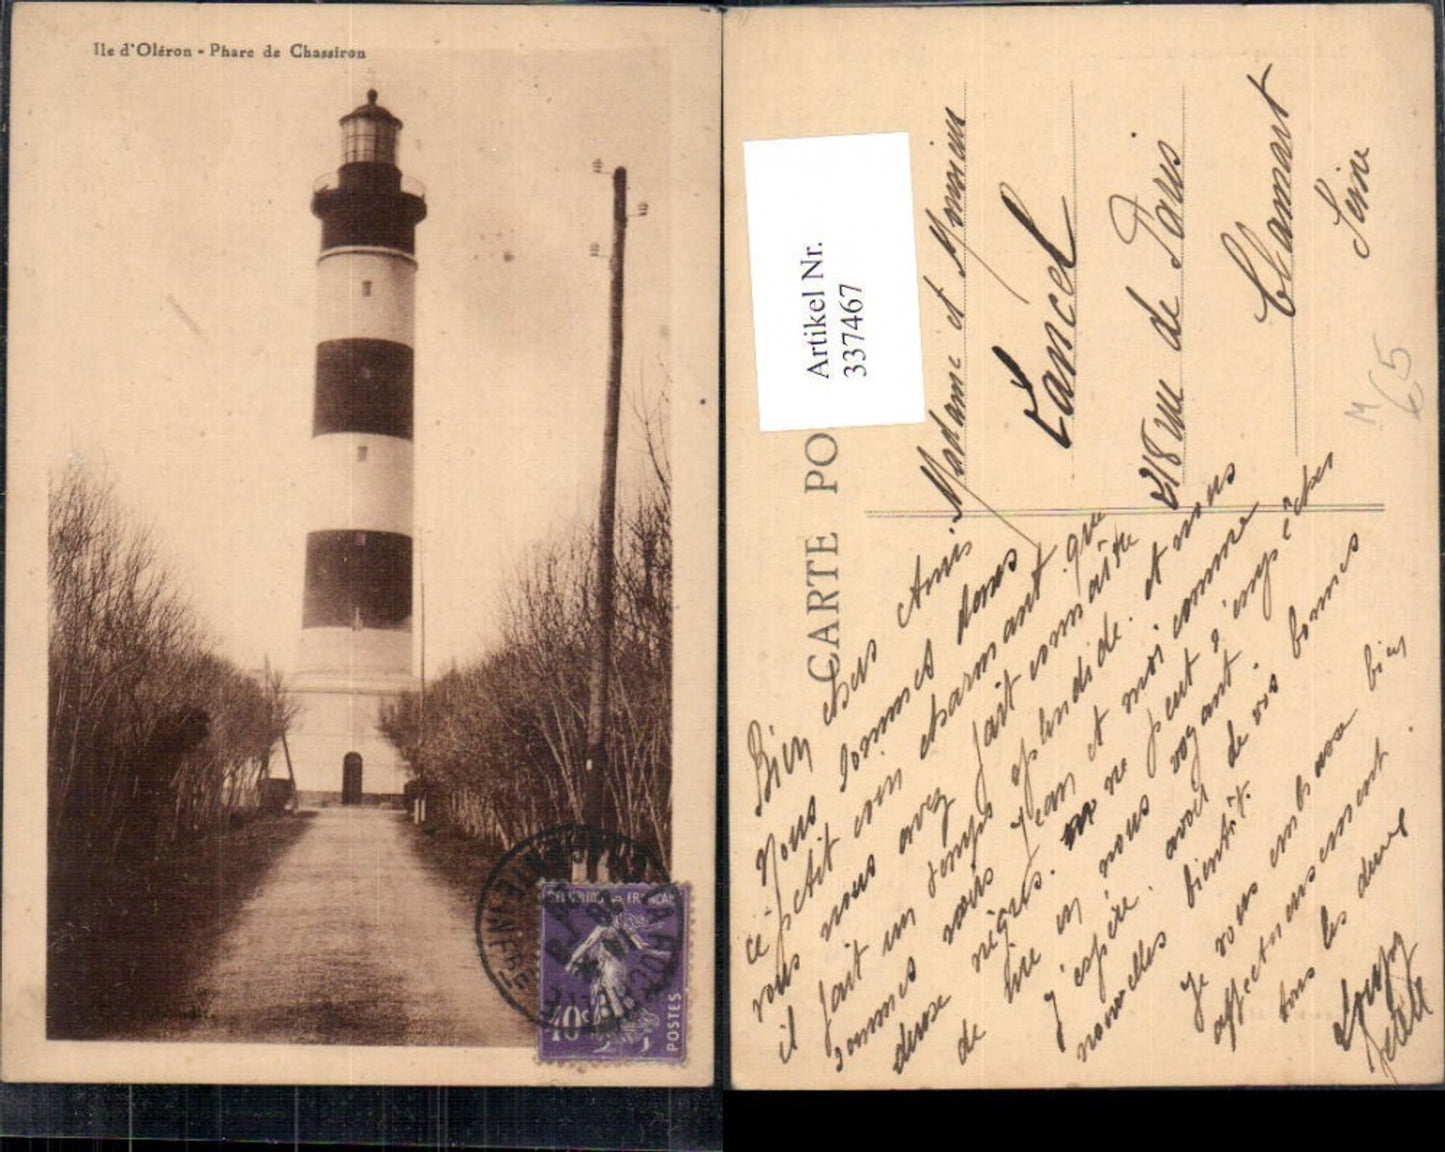 Ile d'Oléron - Phare de Chassiron
LA ROCHELLE
CHTE INFRE
40c
POSTES
Artikel Nr.
337467
CARTE PO
Madame et Monsieur
Lancel
218 rue de Paris
Clamart
Seine
M
65
Bien chers Amis
Nous sommes dans
ce petit coin charmant que
vous nous avez fait connaître
il fait un temps splendide. et nous
sommes noirs Jean et moi comme
deux nègres. on ne peut s'empêcher
de rire en nous voyant.
J'espère avoir de vos bonnes
nouvelles bientôt.
Je vous embrasse bien
affectueusement
tous les deux.